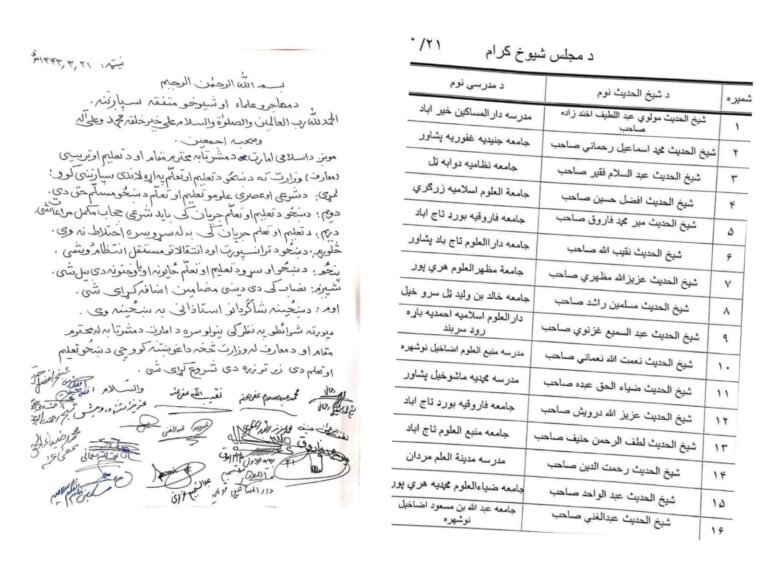 نېټه: ۱۴۴۳/۳/۲۱
بسم الله الرحمن الرحیم
د مهاجرو علماء او شیوخو متفقه سپارتنه.
الحمدلله رب العالمین والصلوة والسلام علی خیر خلقه محمد وعلی آله
وصحبه اجمعین.
موږ د اسلامی امارت د مشرتابه محترم مقام او د تعلیم او تربیی
(معارف) وزارت ته د ښځو د تعلیم او تعلّم په اړه لاندی سپارښتنی کوو:
لمړی: د شرعی او عصری علومو تعلیم او تعلّم د ښځو مسلّم حق دی.
دوهم: د ښځو د تعلیم او تعلّم جریان کی باید شرعی حجاب مکمل مراعات شی.
دریم: د تعلیم او تعلّم جریان کی به له سړو سره اختلاط نه وی.
څلورم: د ښځو د ترانسپورت او د انتقالاتو مستقل انتظام وشی.
پنځم: د ښځو او سړو د تعلیم او تعلّم ځایونه او وختونه دی بیل شی.
شپږم: نصاب کی دی دینی مضامین اضافه کړای شی.
اووم: د ښځینه شاګردانو استاذانی به ښځینه وی.
د پورته شرائطو په نظر کی نیولو سره د امارت د مشرتابه له محترم
مقام او د معارف له وزارت څخه دا غوښتنه کوو چی د ښځو تعلیم
او تعلّم دی ژر تر ژره دی شروع کړای شی.
والسلام
۲۱/
د مجلس شیوخ کرام
شمېره د شیخ الحدیث نوم د مدرسې نوم
۱ شیخ الحدیث مولوي عبد اللطیف اخند زاده صاحب مدرسه دارالمساکین خیر اباد
۲ شیخ الحدیث محمد اسماعیل رحماني صاحب جامعه جنیدیه غفوریه پشاور
۳ شیخ الحدیث عبد السلام فقیر صاحب جامعه نظامیه دوابه ټل
۴ شیخ الحدیث افضل حسین صاحب جامعة العلوم اسلامیه زرګري
۵ شیخ الحدیث میر محمد فاروق صاحب جامعه فاروقیه بورډ تاج اباد
۶ شیخ الحدیث نقیب الله صاحب جامعه دارالعلوم تاج باد پشاور
۷ شیخ الحدیث عزیزالله مظهري صاحب جامعة مظهر العلوم هري پور
۸ شیخ الحدیث مسلمین راشد صاحب جامعه خالد بن ولید ټل سرو خیل
۹ شیخ الحدیث عبد السمیع غزنوي صاحب دارالعلوم اسلامیه احمدیه باره روډ سربند
۱۰ شیخ الحدیث نعمت الله نعماني صاحب مدرسه منبع العلوم اضاخیل نوشهره
۱۱ شیخ الحدیث ضیاء الحق عبده صاحب مدرسه محمدیه ماشوخیل پشاور
۱۲ شیخ الحدیث عزیز الله درویش صاحب جامعه فاروقیه بورډ تاج اباد
۱۳ شیخ الحدیث لطف الرحمن حنیف صاحب جامعه منبع العلوم تاج اباد
۱۴ شیخ الحدیث رحمت الدین صاحب مدرسه مدینة العلم مردان
۱۵ شیخ الحدیث عبد الواحد صاحب جامعه ضیاءالعلوم محمدیه هري پور
۱۶ شیخ الحدیث عبدالغني صاحب جامعه عبد الله بن مسعود اضاخیل نوشهره